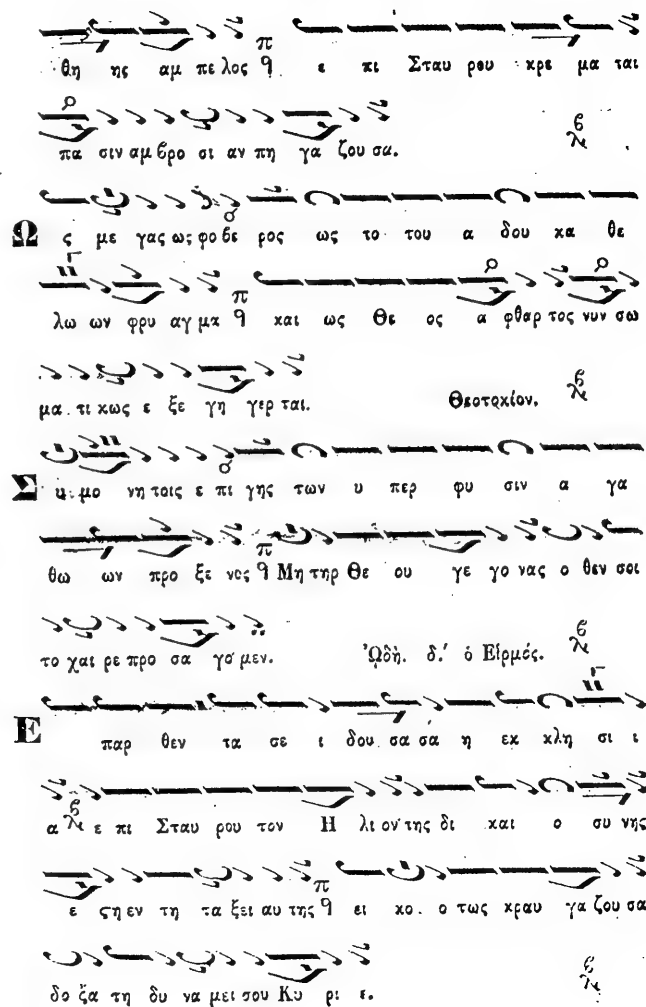 θη ης αμ πε λος π ϥ ε πι Σταυ ρου κρε μα ται
πα σιν αμ βρο σι αν πη γα ζου σα.
Ω ς με γας ως φο βε ρος ως το του α δου κα θε
λω ων φρυ αγ μα π ϥ και ως Θε ος α φθαρ τος νυν σω
μα τι κως ε ξε γη γερ ται. Θεοτοκίον.
Σ μο νη τοις ε πι γης των υ περ φυ σιν α γα
θω ων προ ξε νος π ϥ Μη τηρ Θε ου γε γο νας ο θεν σοι
το χαι ρε προ σα γο μεν. Ὠδὴ. δ.΄ ὁ Εἱρμός.
Ε παρ θεν τα σε ι δου σα σά η εκ κλη σι ι
α ε πι Σταυ ρου τον Η λι ον της δι και ο συ νης
ε ϛη εν τη τα ξει αυ της π ϥ ει κο ο τως κραυ γα ζου σα
δο ξα τη δυ να μει σου Κυ ρι ε.